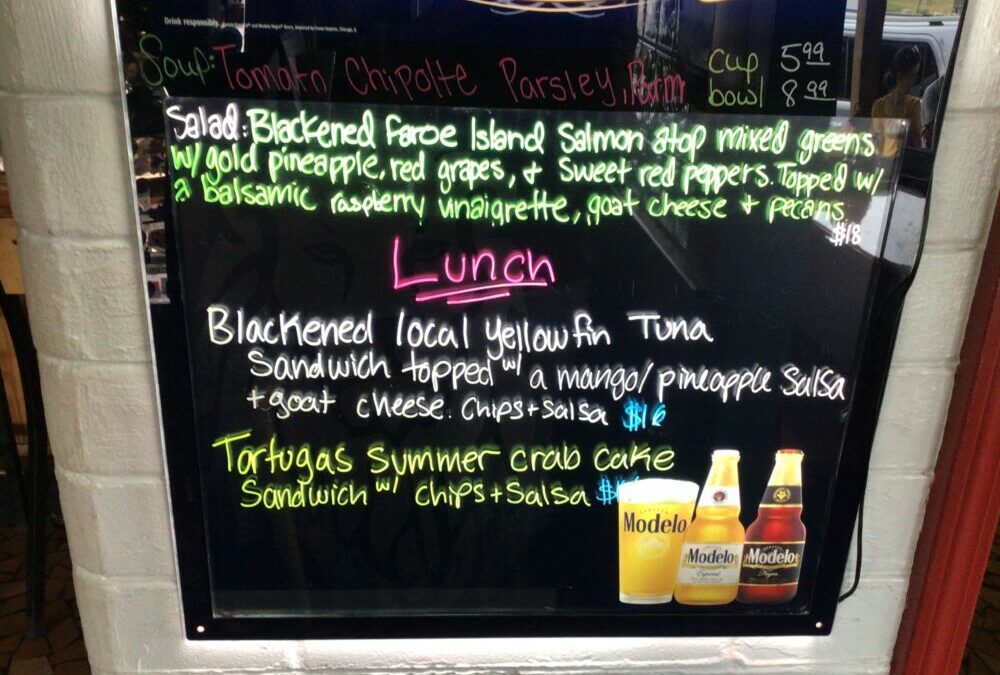 Drink responsibly.
Soup: Tomato Chipolte Parsley, Parm cup 5.99
bowl 8.99
Salad: Blackened Faroe Island Salmon atop mixed greens
w/ gold pineapple, red grapes, + Sweet red peppers. Topped w/
a balsamic raspberry vinaigrette, goat cheese + pecans
$18
Lunch
Blackened local yellowfin Tuna
Sandwich topped w/ a mango/pineapple Salsa
+ goat cheese. Chips + Salsa $16
Tortugas summer crab cake
Sandwich w/ chips + Salsa
Modelo
Modelo
Especial
Modelo
Negra